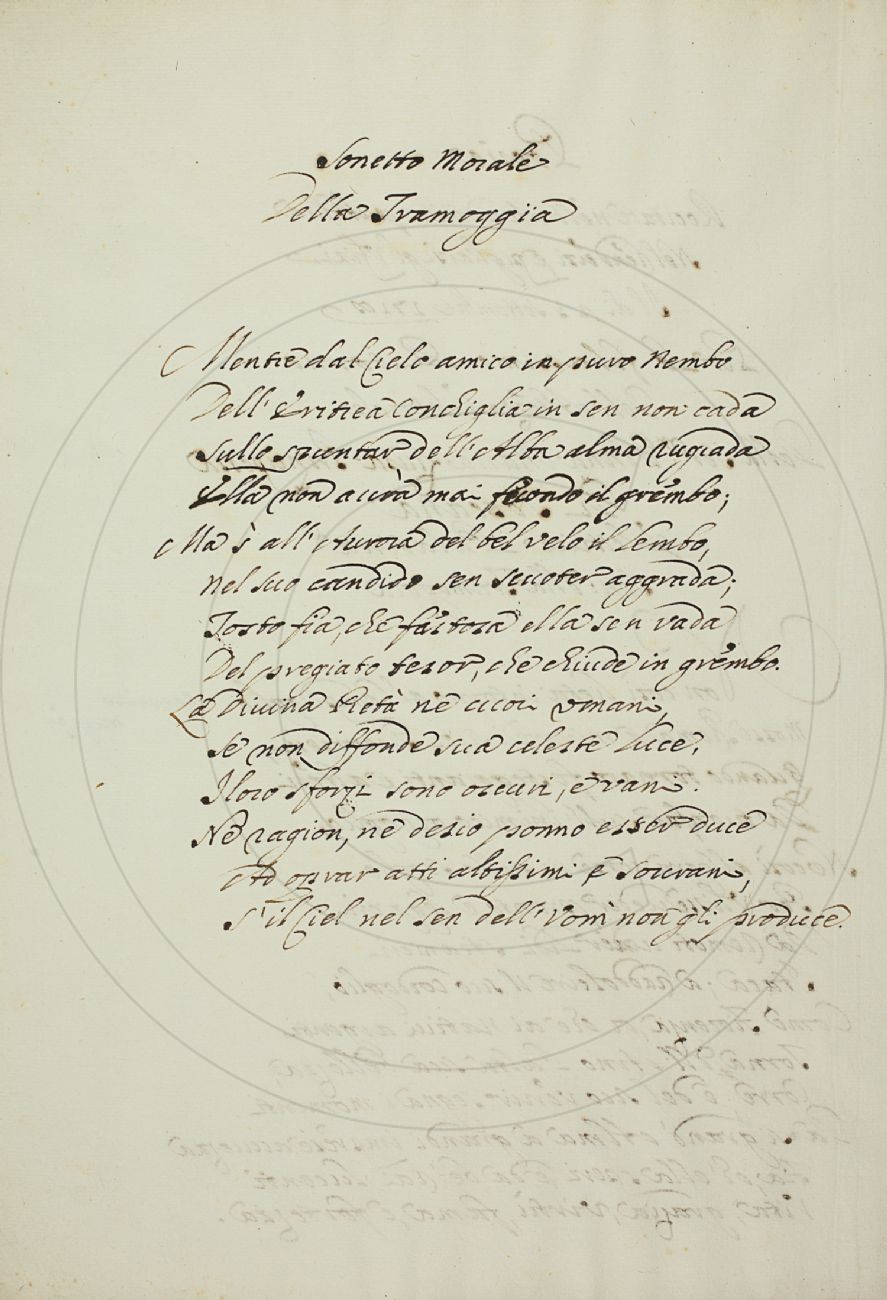 Sonetto Morale
Della Tramoggia
Mentre dal Cielo amico in puro Nembo
Dell' Eritrea Conchiglia in sen non cada
Sullo spuntar dell' Alba alma rugiada
Ella non avrà mai fecondo il grembo;
Ma s' all' Aurora del bel velo il Lembo,
Nel suo candido sen scuoter aggrada;
Tosto fia, che fastosa ella sen vada
Del pregiato tesor, che chiude in grembo.
La Divina Pietà ne cuori umani,
Se non diffonde sua celeste Luce,
I loro sforzi sono oscuri, e vani.
Nè ragion, nè desio ponno esser duce
Ad oprar atti altissimi e sourani,
S' il Ciel nel sen dell' Uom non gli produce.